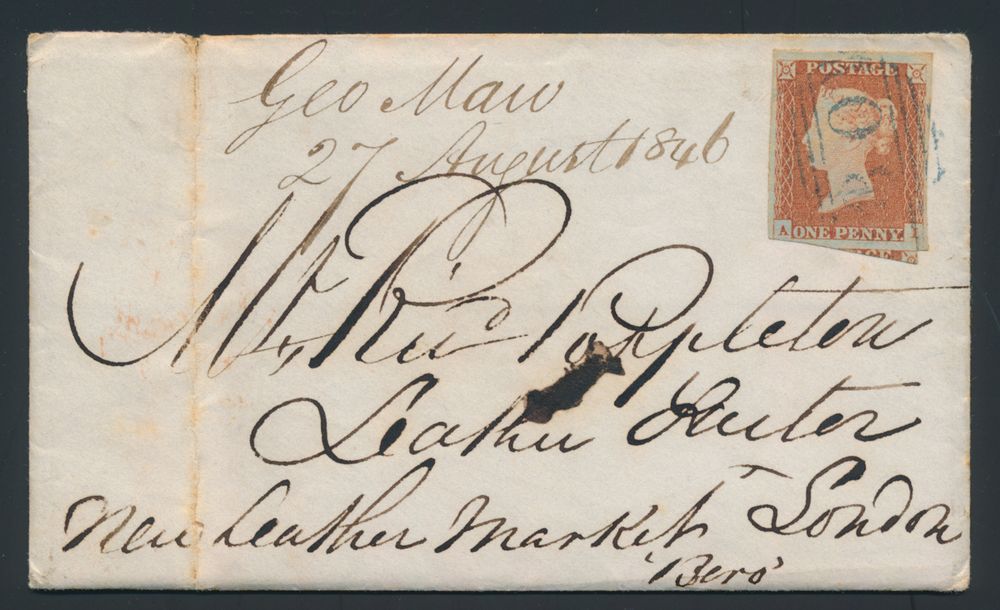 Geo Maw
27 August 1846
POSTAGE
A ONE PENNY. I
Mr. Ricd Poppleton
Leather Factor
New Leather Market London
'Bero'